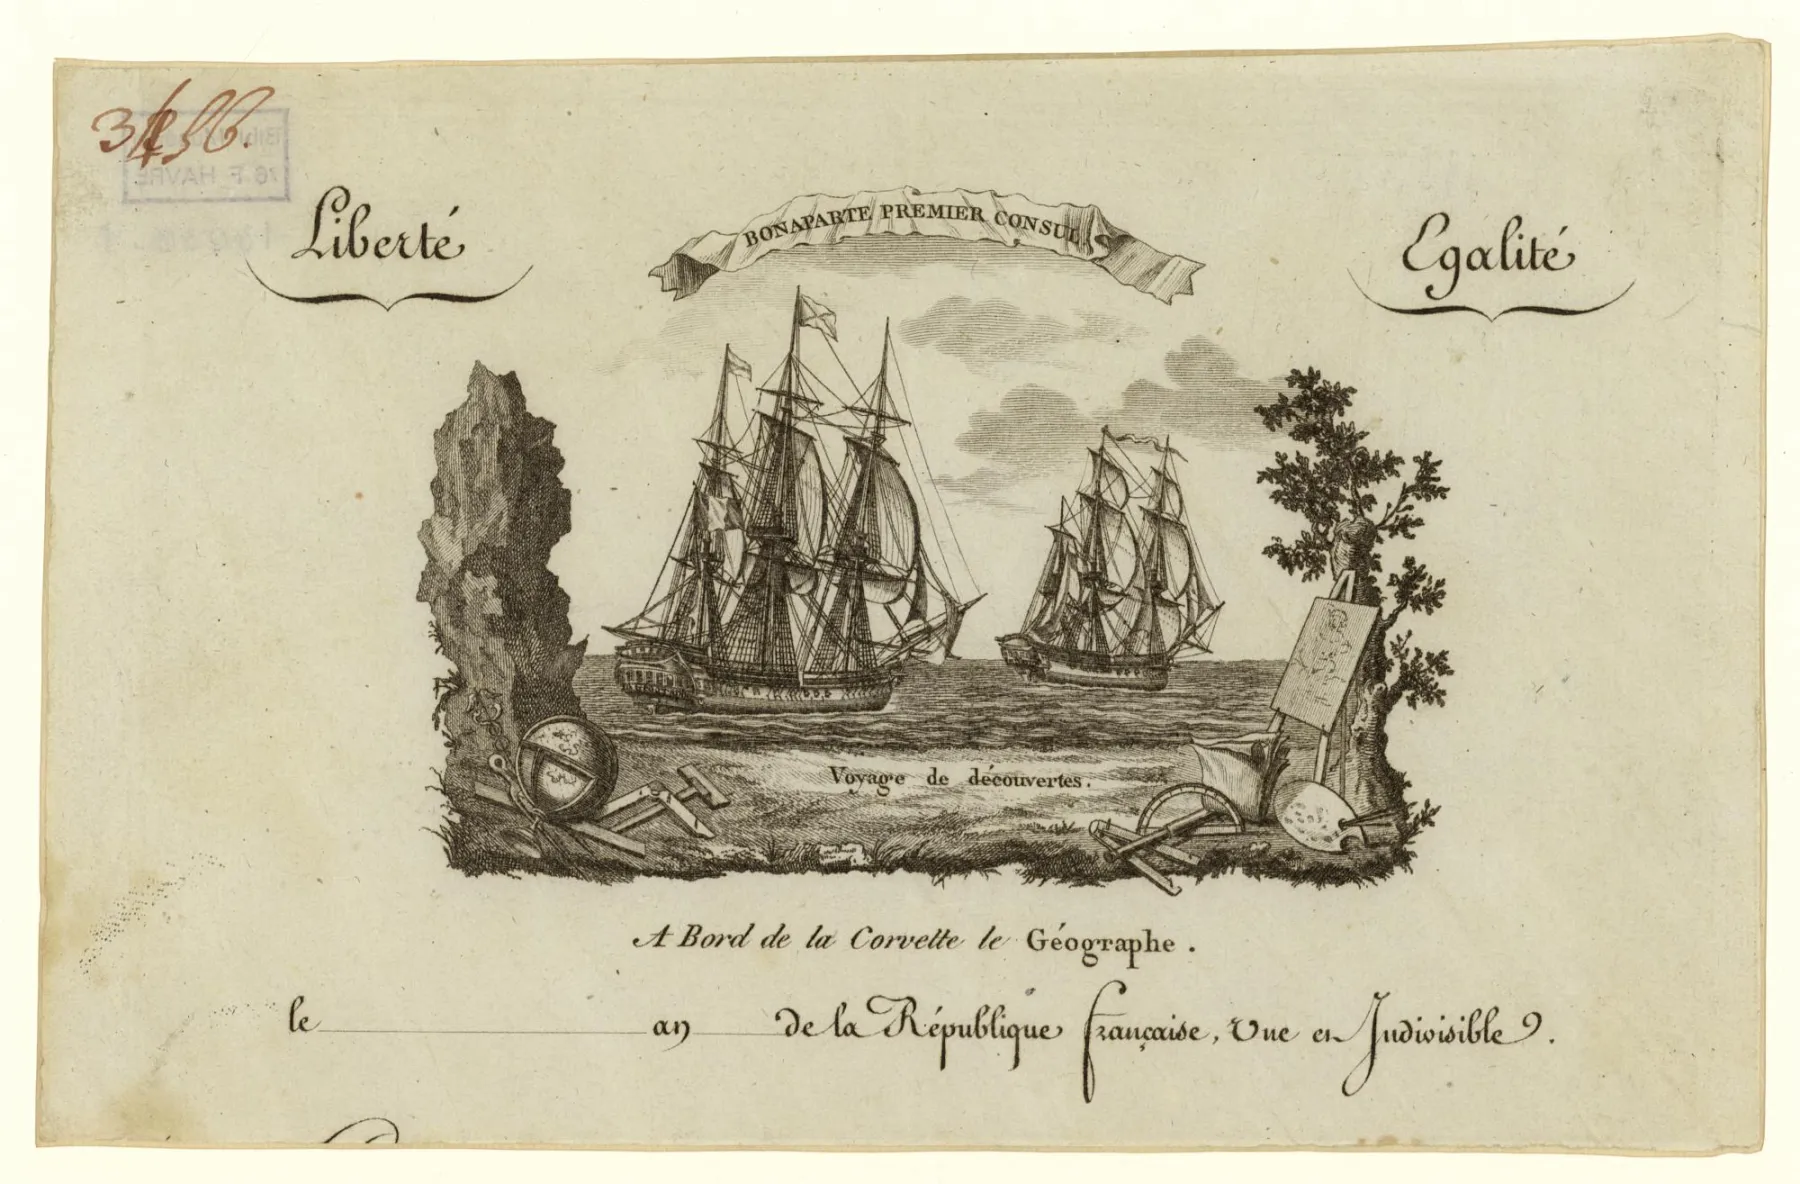 Liberté
BONAPARTE PREMIER CONSUL
Egalité
Voyage de découvertes.
A Bord de la Corvette le Géographe.
le an de la République française, Une et Indivisible.